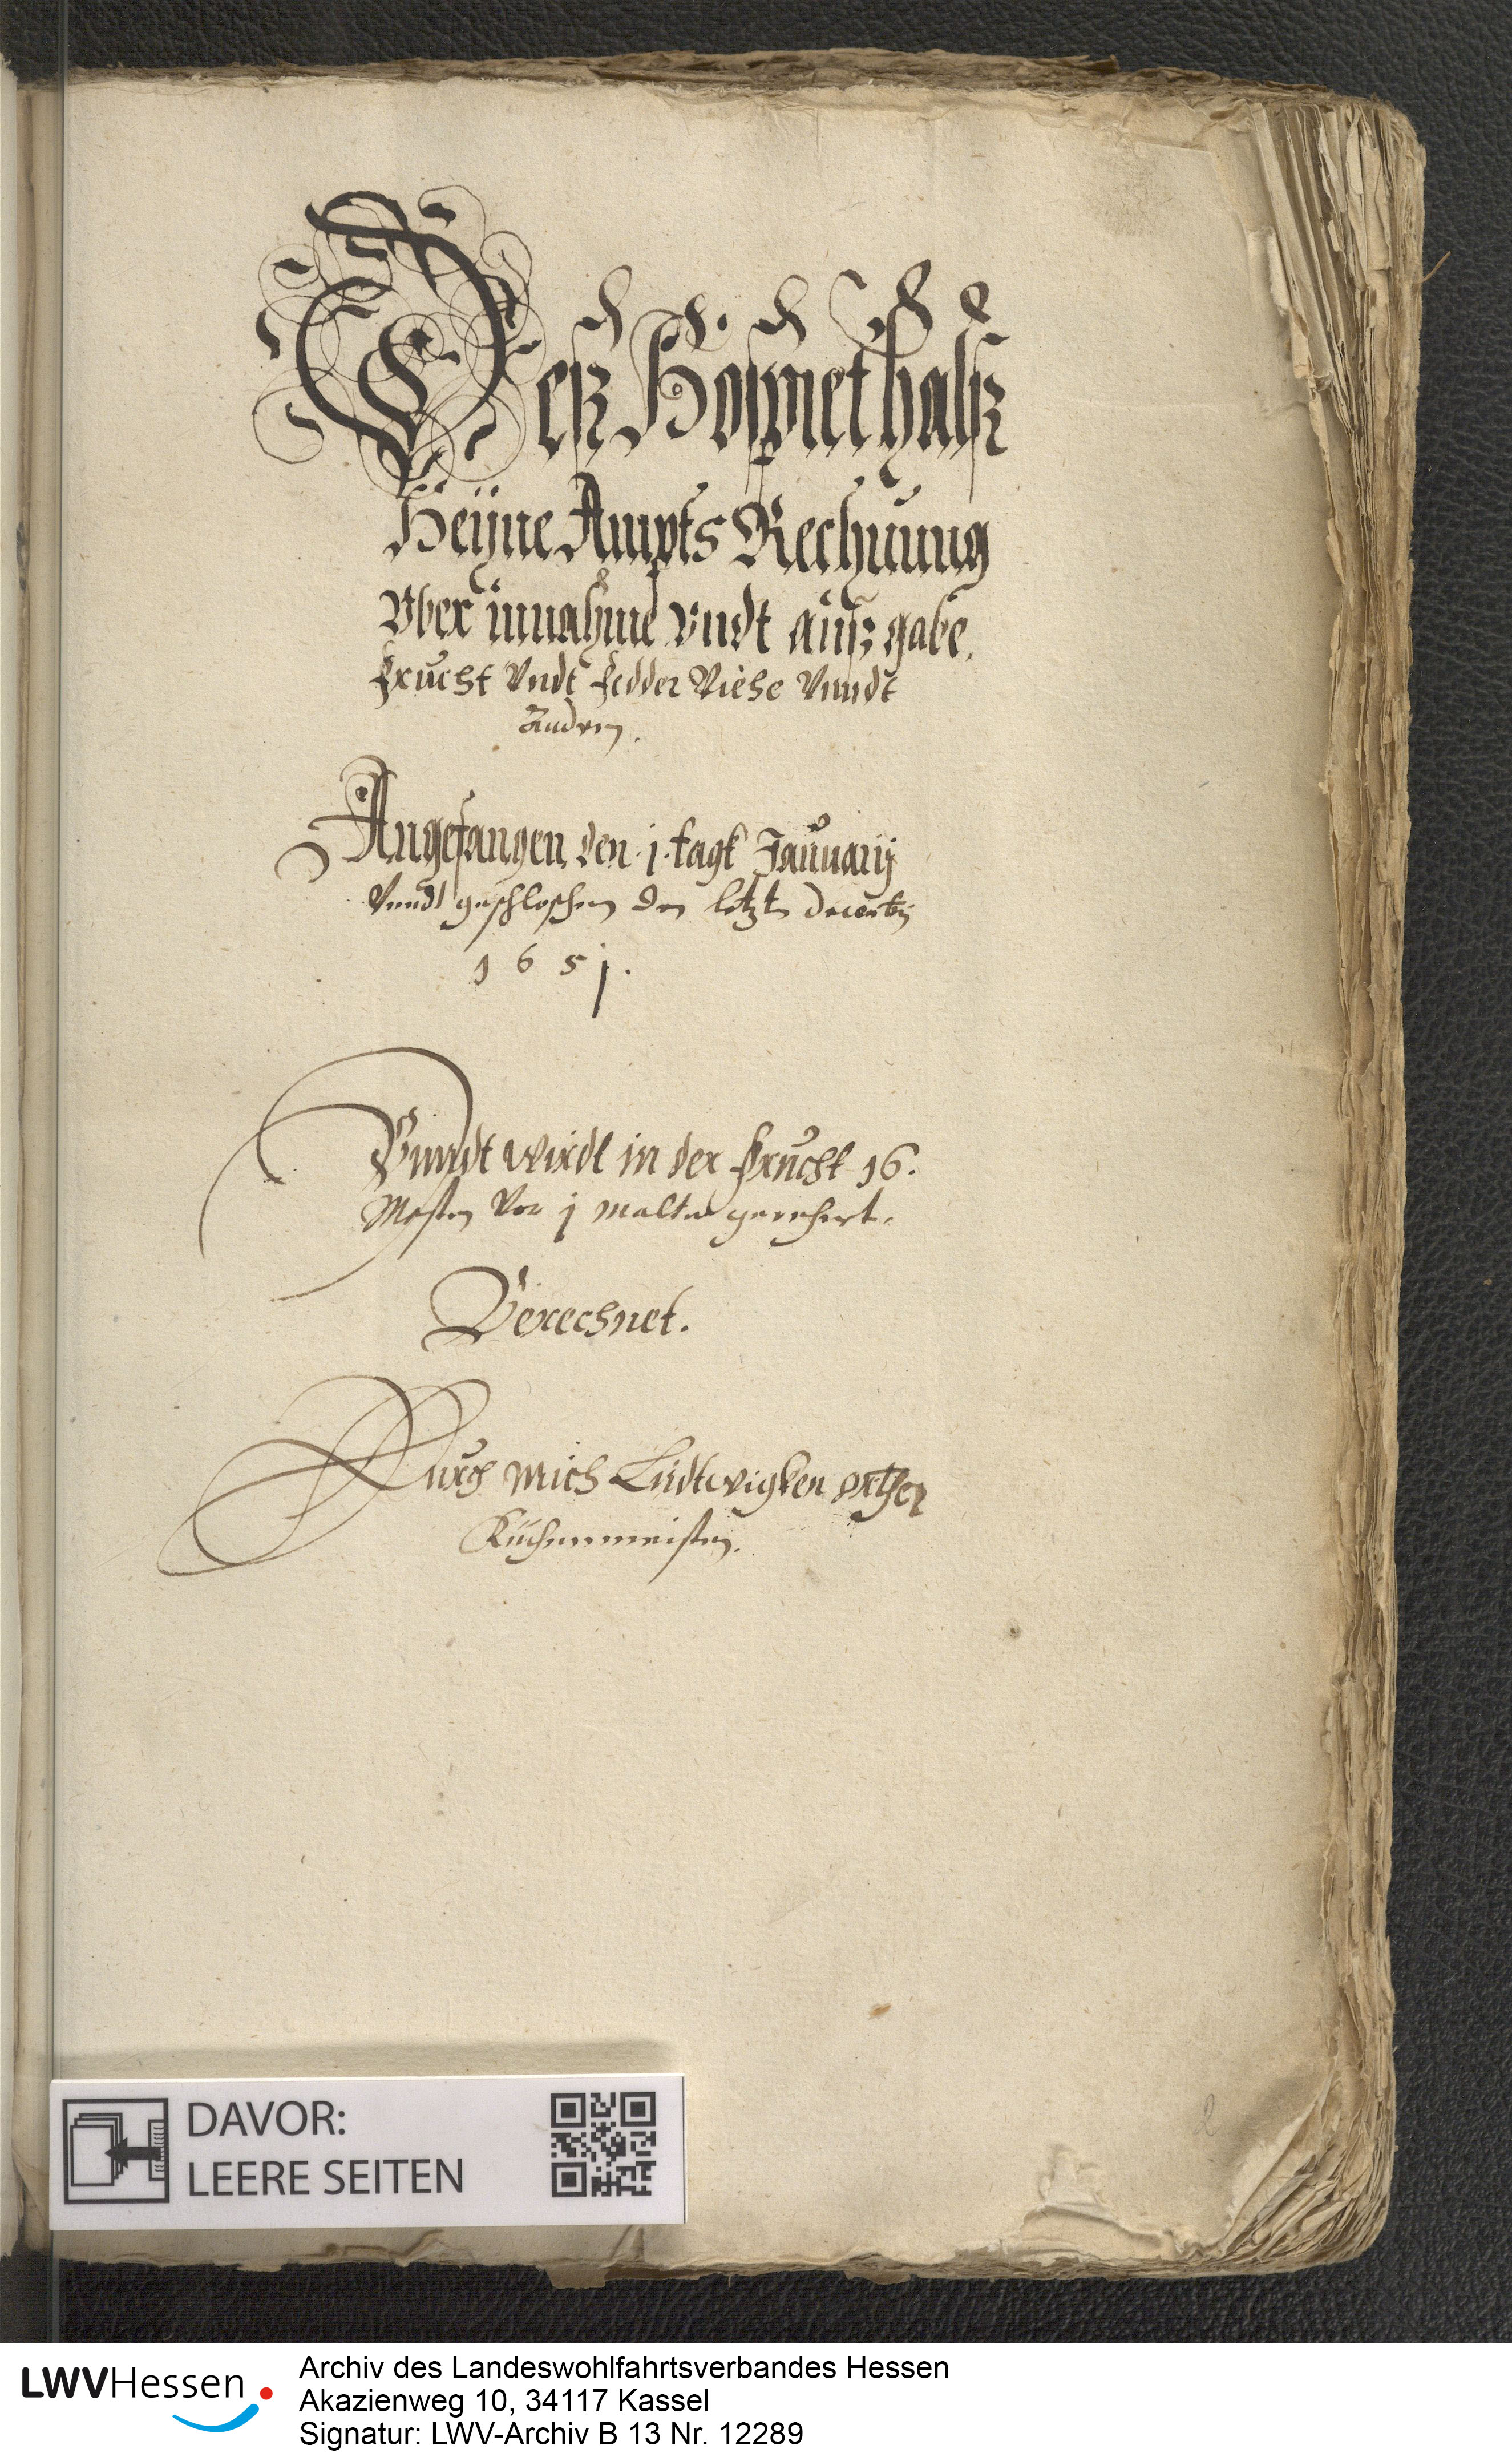 Deß Hospiethalß
Heÿne Ampts Rechnung
Vber innahme vndt außgabe.
Frucht Vndt Fedder Viehe Vnndt
Andern.
Angefangen den .j. tagk Januarij
Vnndt geschloßen den letzten Decembris
1651.
Vnndt wirdt in der Frucht 16.
Mesten Vor j Malter gerechent.
Berechnet.
Durch Mich Ludtwigken orther
Küchenmeistern.
DAVOR:
LEERE SEITEN
2
LWVHessen
Archiv des Landeswohlfahrtsverbandes Hessen
Akazienweg 10, 34117 Kassel
Signatur: LWV-Archiv B 13 Nr. 12289